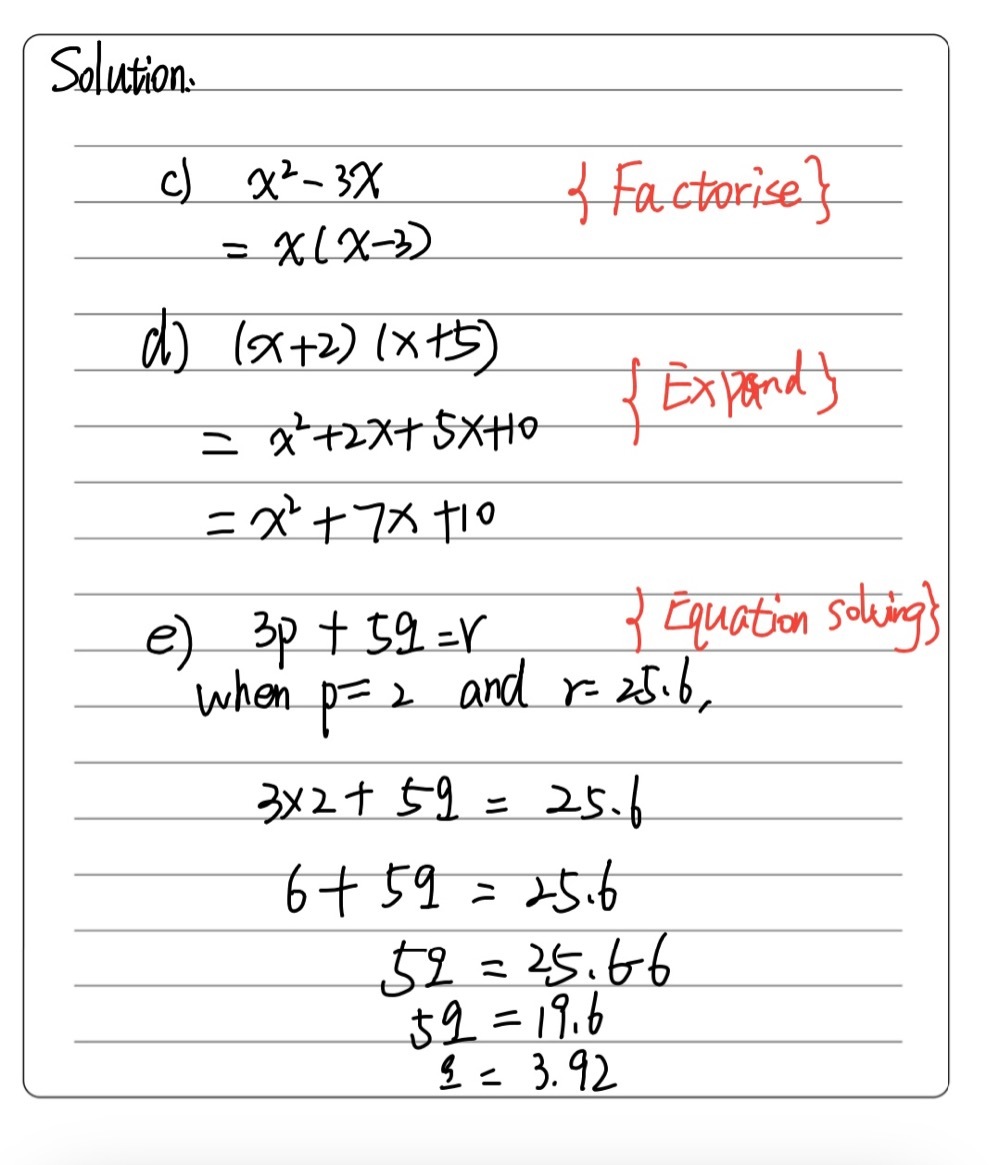 Solution.
c) x² - 3x { Factorise }
= x(x-3)
d) (x+2) (x+5)
{ Expand }
= x²+2x+5x+10
= x² + 7x +10
e) 3p + 5q = r { Equation solving }
when p = 2 and r = 25.6,
3×2 + 5q = 25.6
6 + 5q = 25.6
5q = 25.6-6
5q = 19.6
q = 3.92